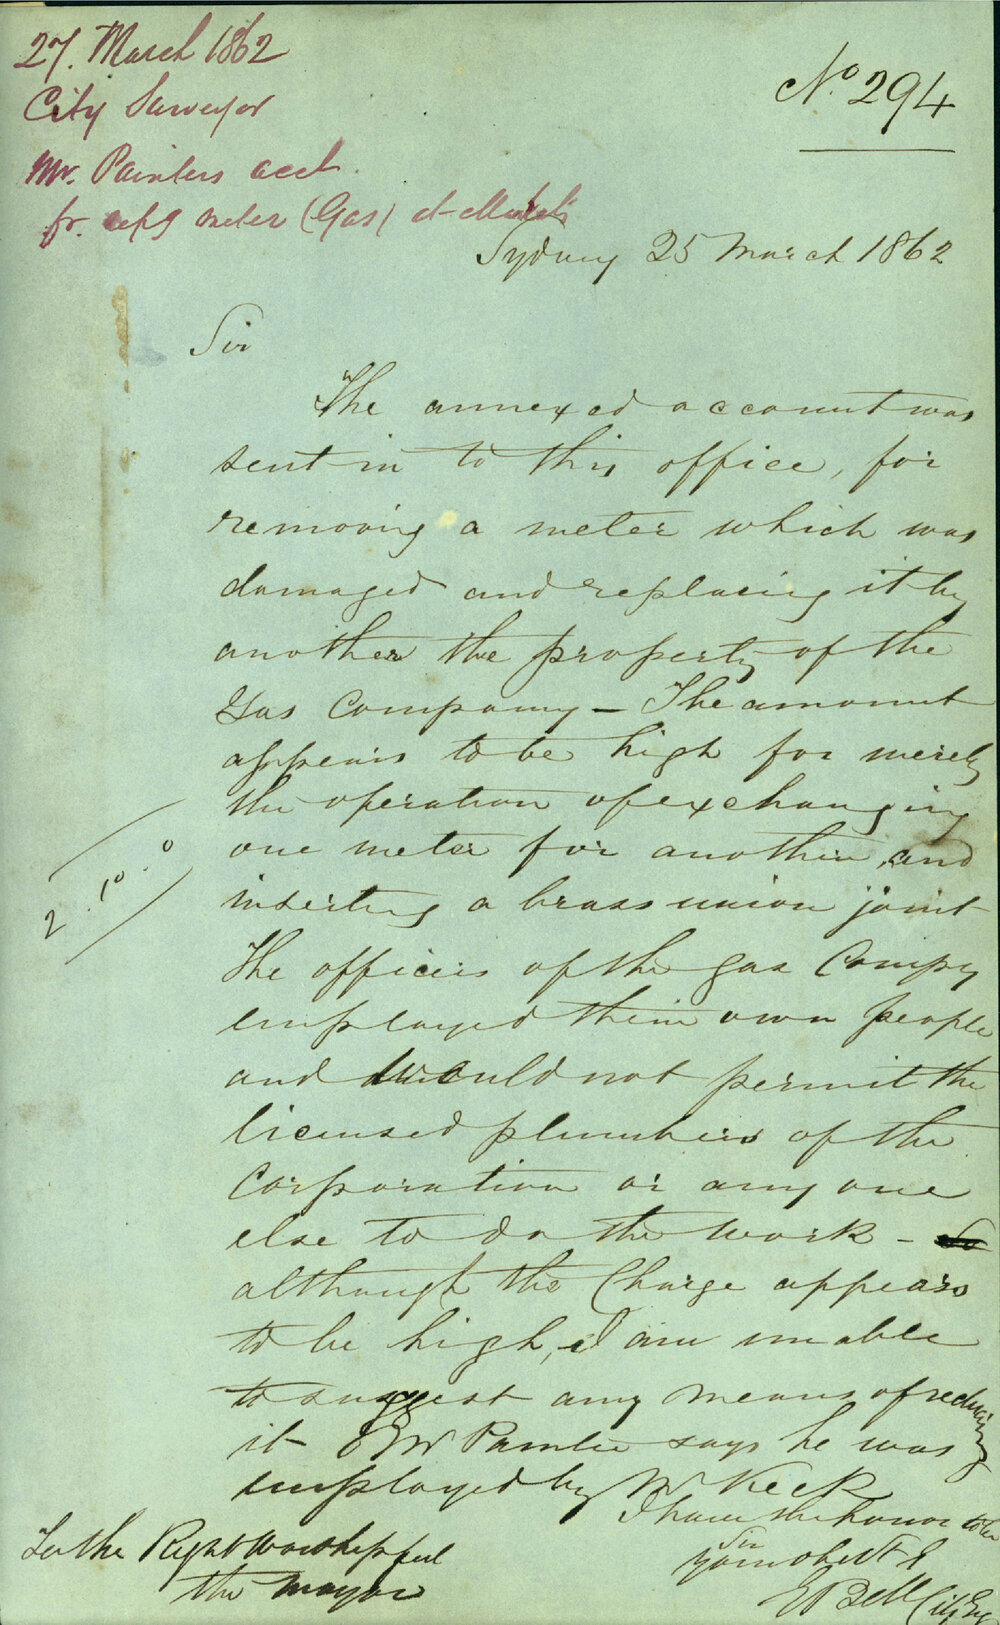 27. March 1862
City Surveyor
Mr. Painters acct.
for repg meter (Gas) at Markets
No. 294
Sydney 25 March 1862
Sir
The annexed account was
sent in to this office, for
removing a meter which was
damaged and replacing it by
another the property of the
Gas Company – The amount
appears to be high for merely
the operation of exchanging
one meter for another, and
2.10.0
inserting a brass union joint
The officers of the gas Compy
employed their own people
and would not permit the
licensed plumbers of the
Corporation or any one
else to do the work –
although the Charge appears
to be high, I am unable
to suggest any means of reducing
it – Painter says he was
employed by Mr Keck
I have the honor to be
Sir
your obedt S
E Bell City Eng
To the Right Worshipful
the Mayor